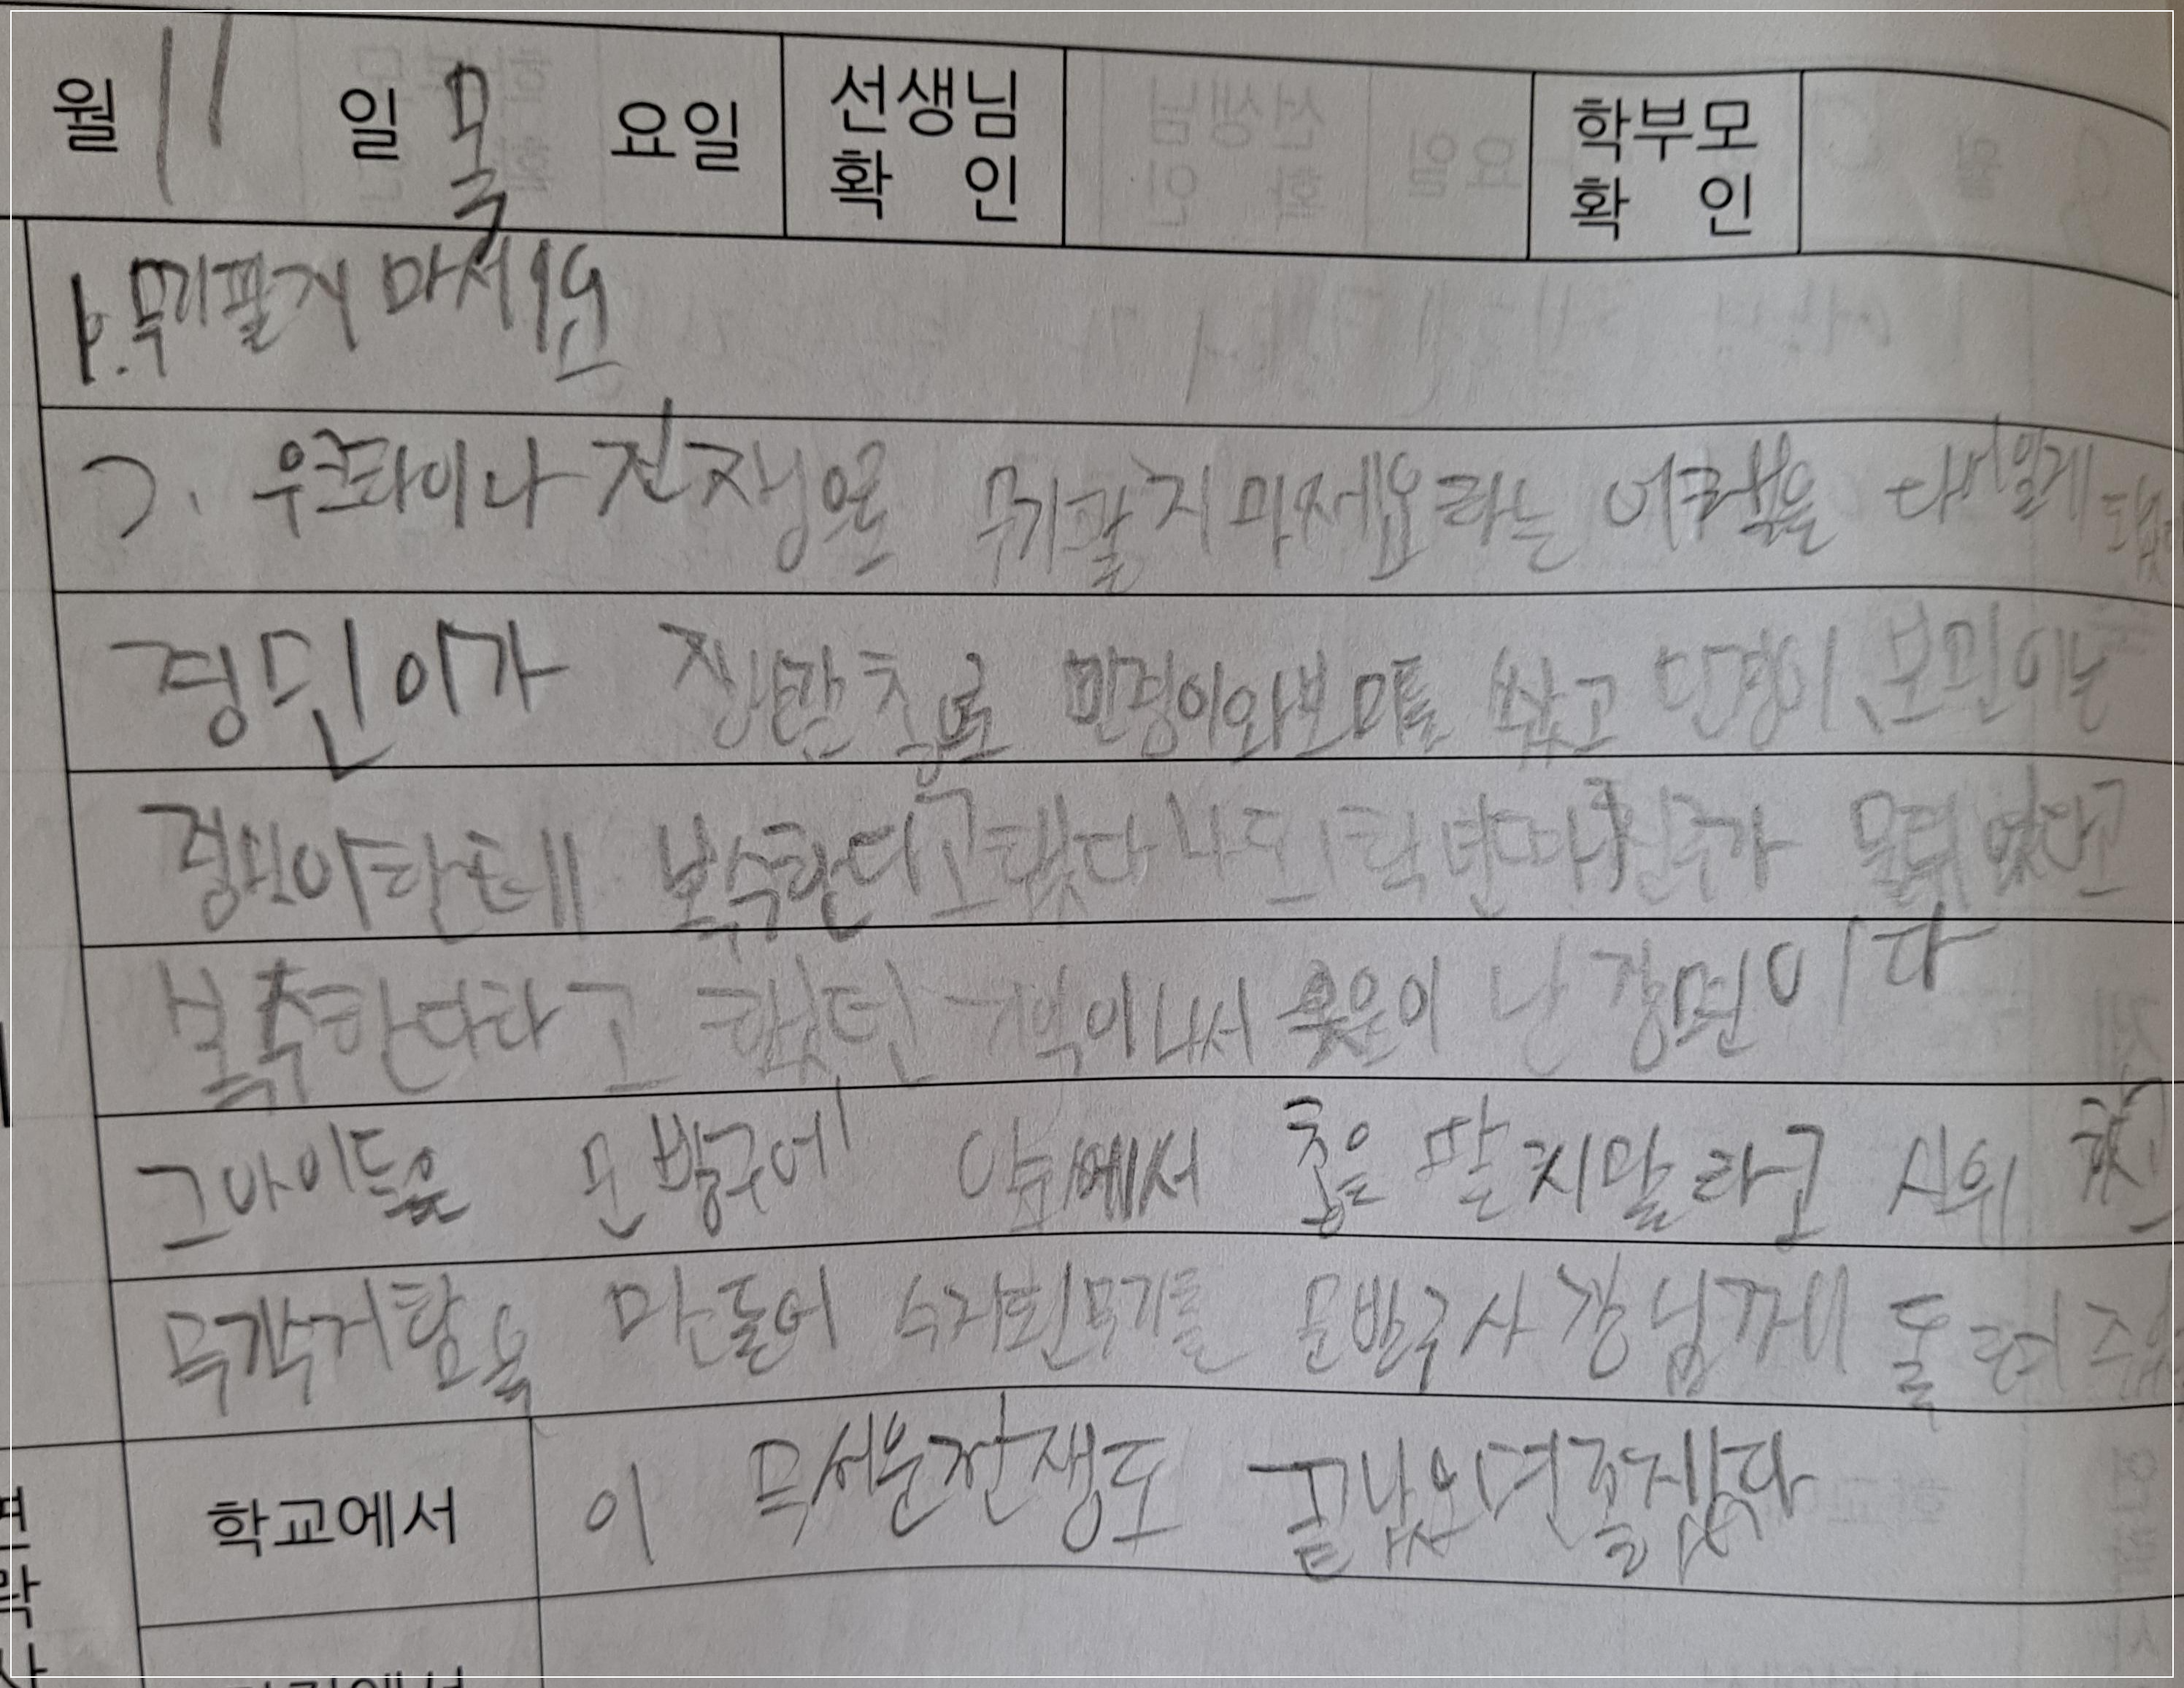 월 11 일 목 요일 선생님 확인 학부모 확인
1. 무기팔지 마세요
2. 우크라이나 전쟁으로 무기팔지마세요라는 책을 다시 읽게
경민이가 장난감 총으로 민경이와보미를 쐈고 민경이, 보민이는
경민이한테 복수한다고했다 나도 1학년때 친구가
복수한다라고 했던 기억이나서 웃음이 난 장면이다
그아이들은 문방구에 앞에서 총을 팔지말라고 시위
무기수거함을 만들어 수거된무기를 문방구사장님께 돌려
학교에서 이 무서운전쟁도 끝났으면좋겠다